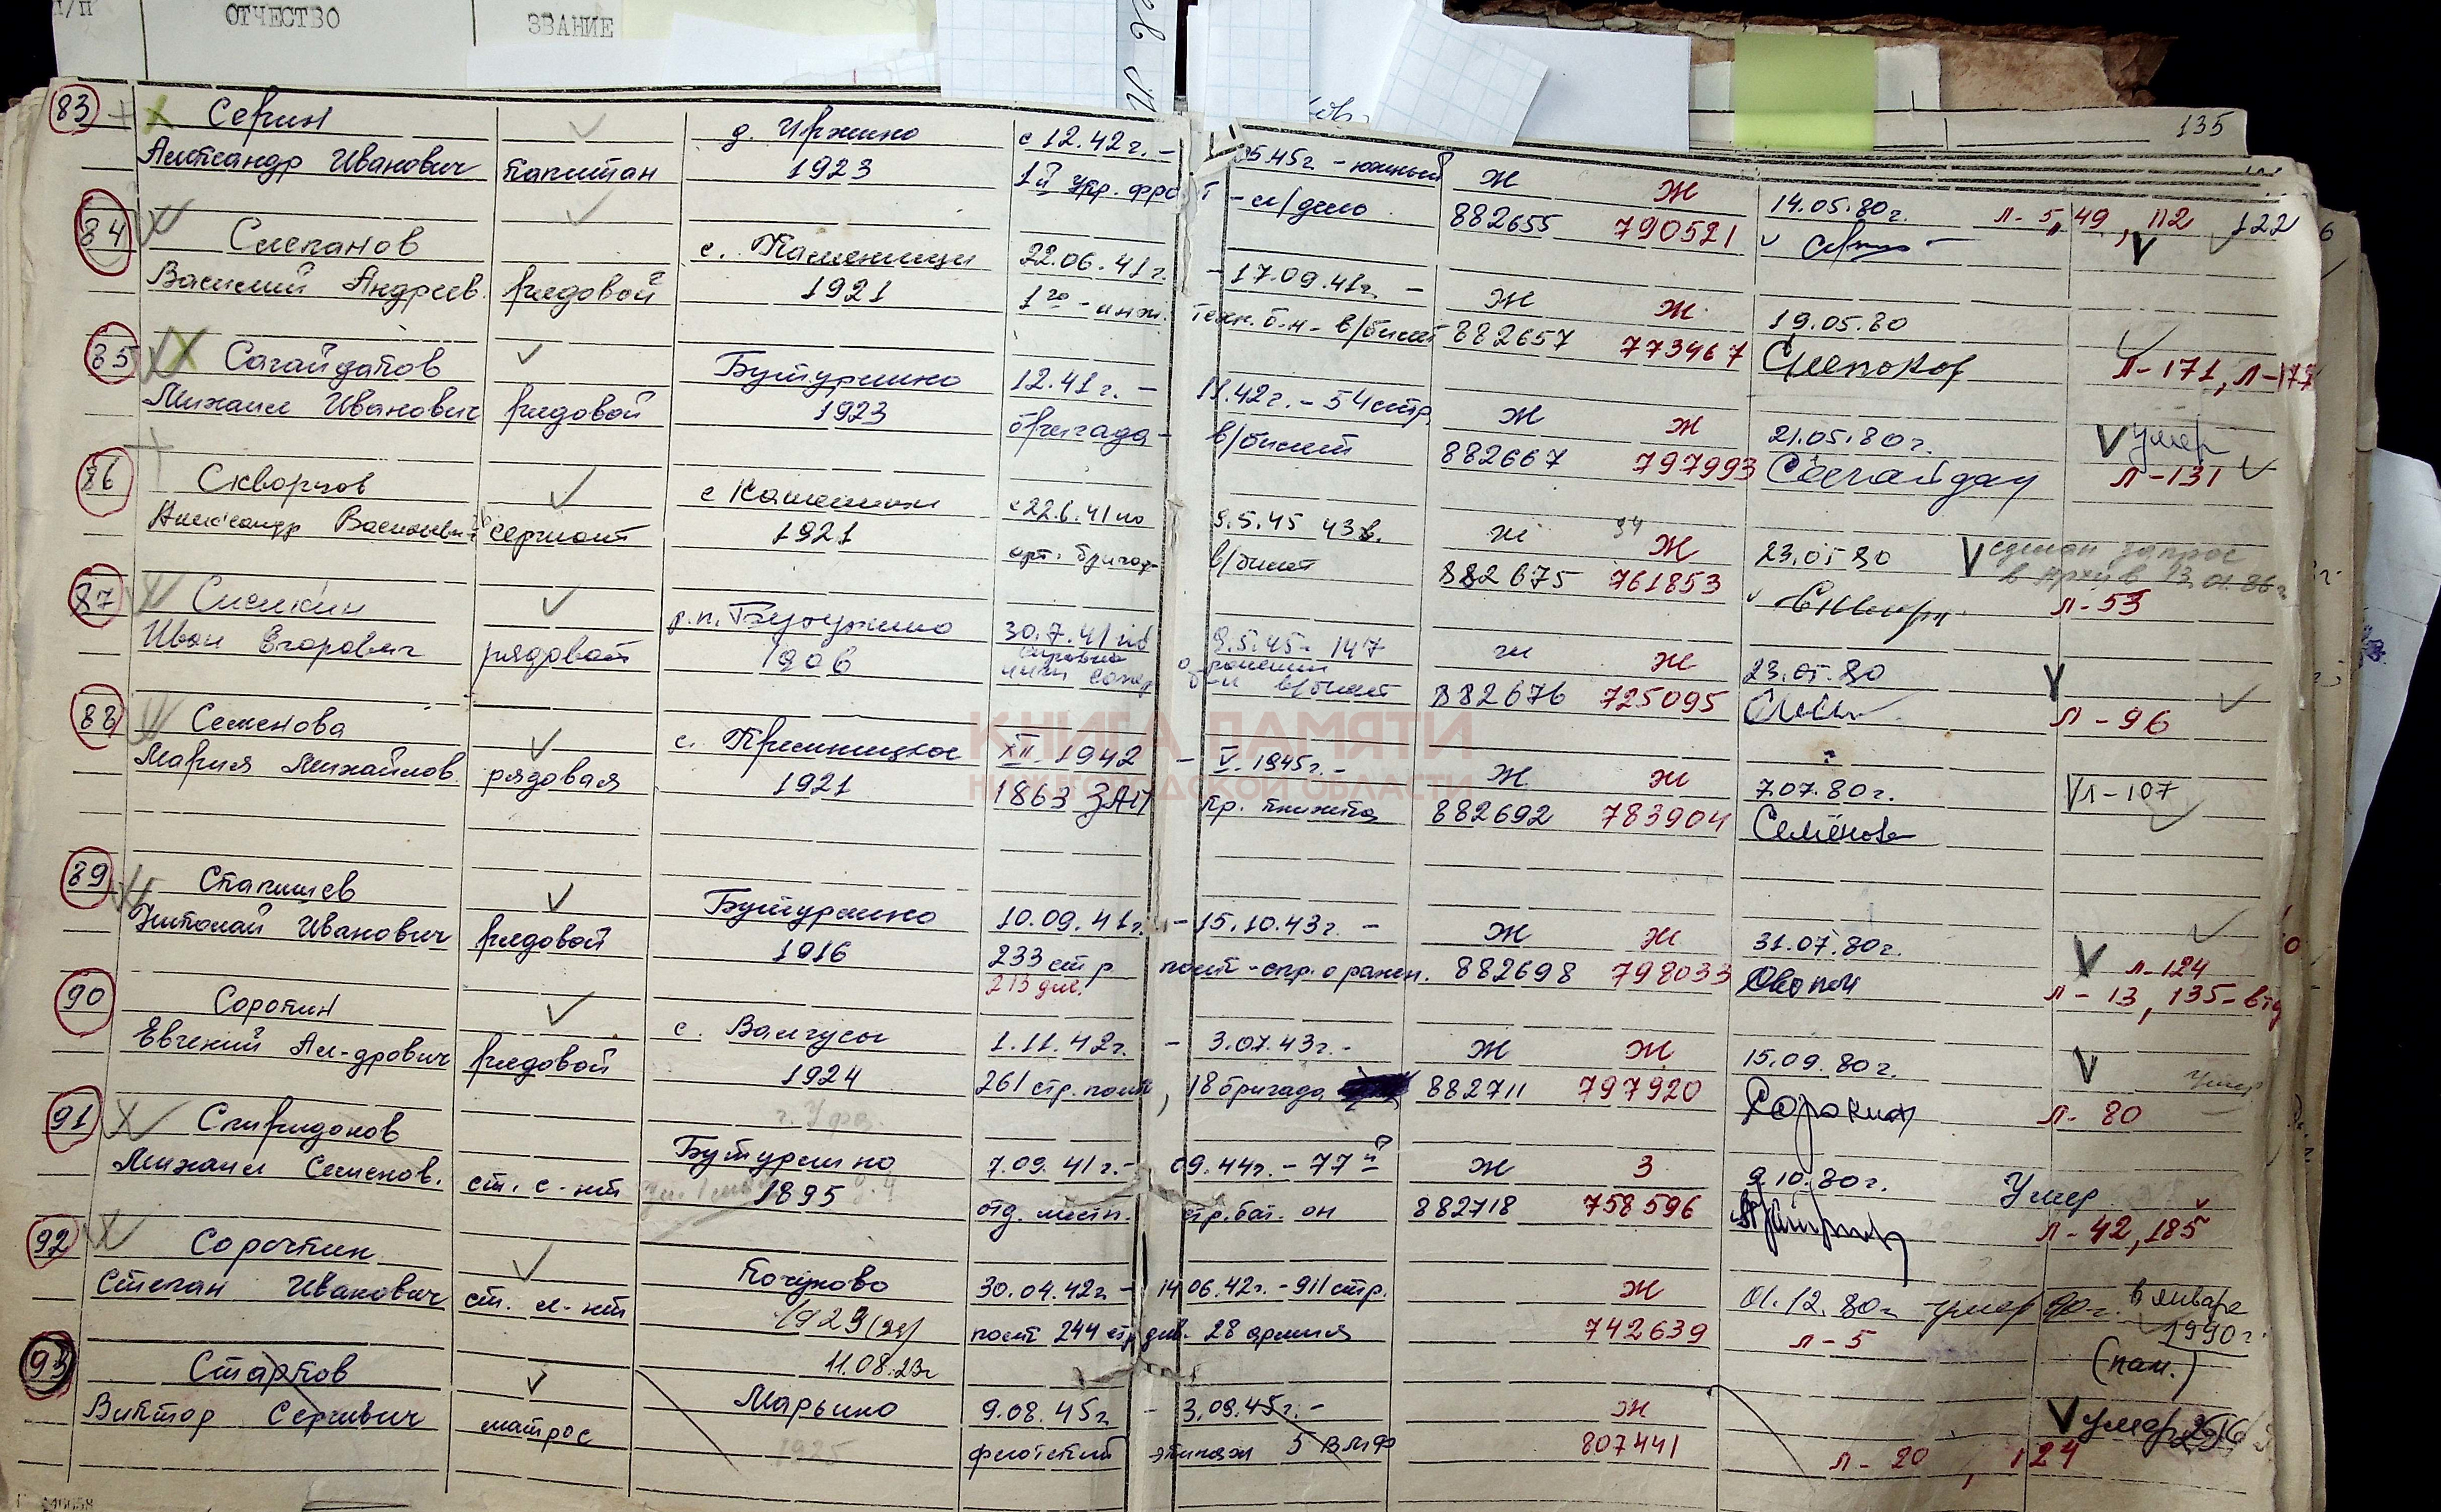 п/п ОТЧЕСТВО ЗВАНИЕ
135
83 Серин д. Иржино с 12.42г. - 05.45г - южный Ж Ж 14.05.80г. л-5, 49, 112 122
Александр Иванович капитан 1923 1й Укр. фронт - л/дело 882655 790521
84 Слепанов с. Каменищи 22.06.41г. - 17.09.41г. - Ж Ж 19.05.80
Василий Андреев. рядовой 1921 1го - инж. техн. б.н - в/билет 882657 773467 л-171, л-177
85 Сагайдаков Бутурлино 12.41г. - 11.42г. - 54 стр. Ж Ж 21.05.80г. умер
Михаил Иванович рядовой 1923 бригада - в/билет 882667 797993 л-131
86 Скворцов с Каменищи с 22.6.41 по 9.5.45 43 в. Ж Ж 23.05 80 сделан запрос
в архив 13.01.86г
Александр Васильевич сержант 1921 арт. бригад- в/билет 882675 761853 л-53
87 Сиским р.п. Бутурлино 30.7.41 по 9.5.45 - 147 Ж Ж 23.05.80
Иван Егорович рядовой 1906 в/билет 882676 725095 л-96
88 Семенова с. Крениницкое XII. 1942 - V. 1945г. - Ж Ж 7.07.80г. л-107
Мария Михайлов. рядовая 1921 1863 ЗАП кр. книжка 882692 783904 Семёнова
КНИГА ПАМЯТИ
НИЖЕГОРОДСКОЙ ОБЛАСТИ
89 Стапишев Бутурлино 10.09.41г. - 15.10.43г. - Ж Ж 31.07.80г.
Николай Иванович рядовой 1916 233 стр полк - спр. о ранен. 882698 798033 л-124
213 див. л-13, 135-втд
90 Сорокин с. Валгусы 1.11.42г. - 3.07.43г. - Ж Ж 15.09.80г. умер
Евгений Ал-дрович рядовой 1924 261 стр. полк, 18 бригада 882711 797920 Сорокин л-80
91 Спиридонов г. Уфа. Бутурлино 7.09.41г. - 09.44г. - 77й Ж З 9.10.80г. Умер
Михаил Семенов. ст. с-нт 1895 отд. местн. стр. бат. он 882718 758596 л-42, 185
92 Сорочкин Кочуново 30.04.42г - 14 06.42г. - 911 стр. Ж 01.12.80г умер 90г. в январе
1990г.
Степан Иванович ст. л-нт 1923 (24) полк 244 стр див. 28 армия 742639 л-5 (пам.)
11.08.23г
93 Старков Марьино 9.08.45г - 3.09.45г. - Ж умер
Виктор Сергеевич матрос 1925 флотский экипаж 5 ВМФ 807441 л-20, 124